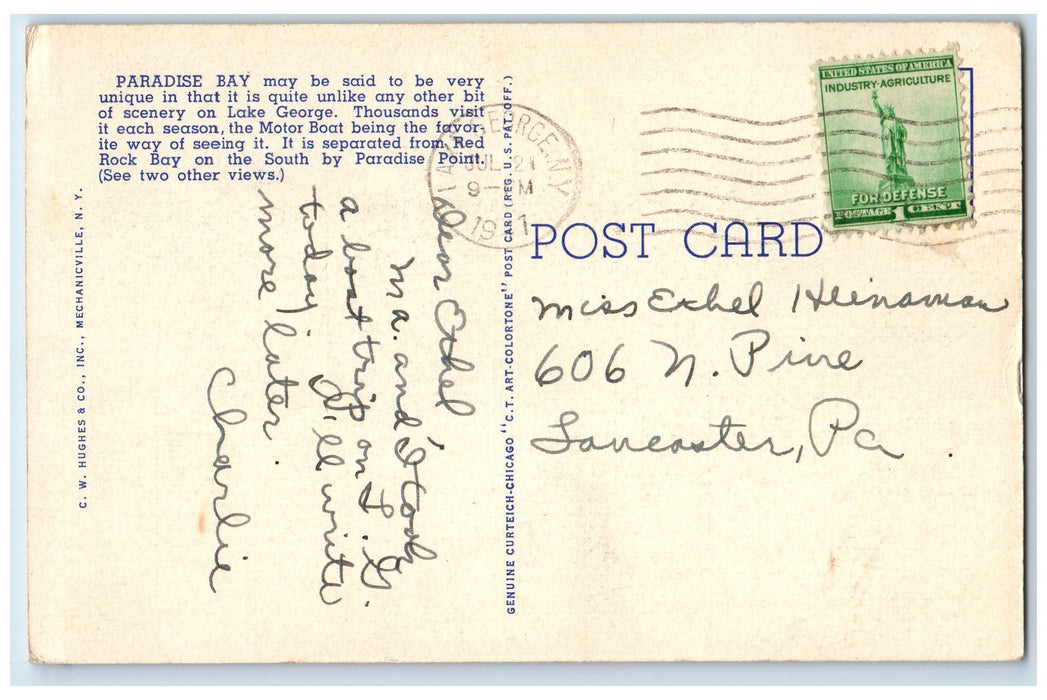 PARADISE BAY may be said to be very
unique in that it is quite unlike any other bit
of scenery on Lake George. Thousands visit
it each season, the Motor Boat being the favor-
ite way of seeing it. It is separated from Red
Rock Bay on the South by Paradise Point.
(See two other views.)
C. W. HUGHES & CO., INC., MECHANICVILLE, N. Y.
Dear Ethel
Ma. and I took
a boat trip on L. G.
today, I'll write
more later.
Charlie
GENUINE CURTEICH-CHICAGO "C.T. ART-COLORTONE" POST CARD (REG. U.S. PAT. OFF.)
LAKE GEORGE, N.Y.
JUL 21
9- M
19 1
UNITED STATES OF AMERICA
INDUSTRY-AGRICULTURE
FOR DEFENSE
POSTAGE 1 CENT
POST CARD
Miss Ethel Heinaman
606 N. Pine
Lancaster, Pa.